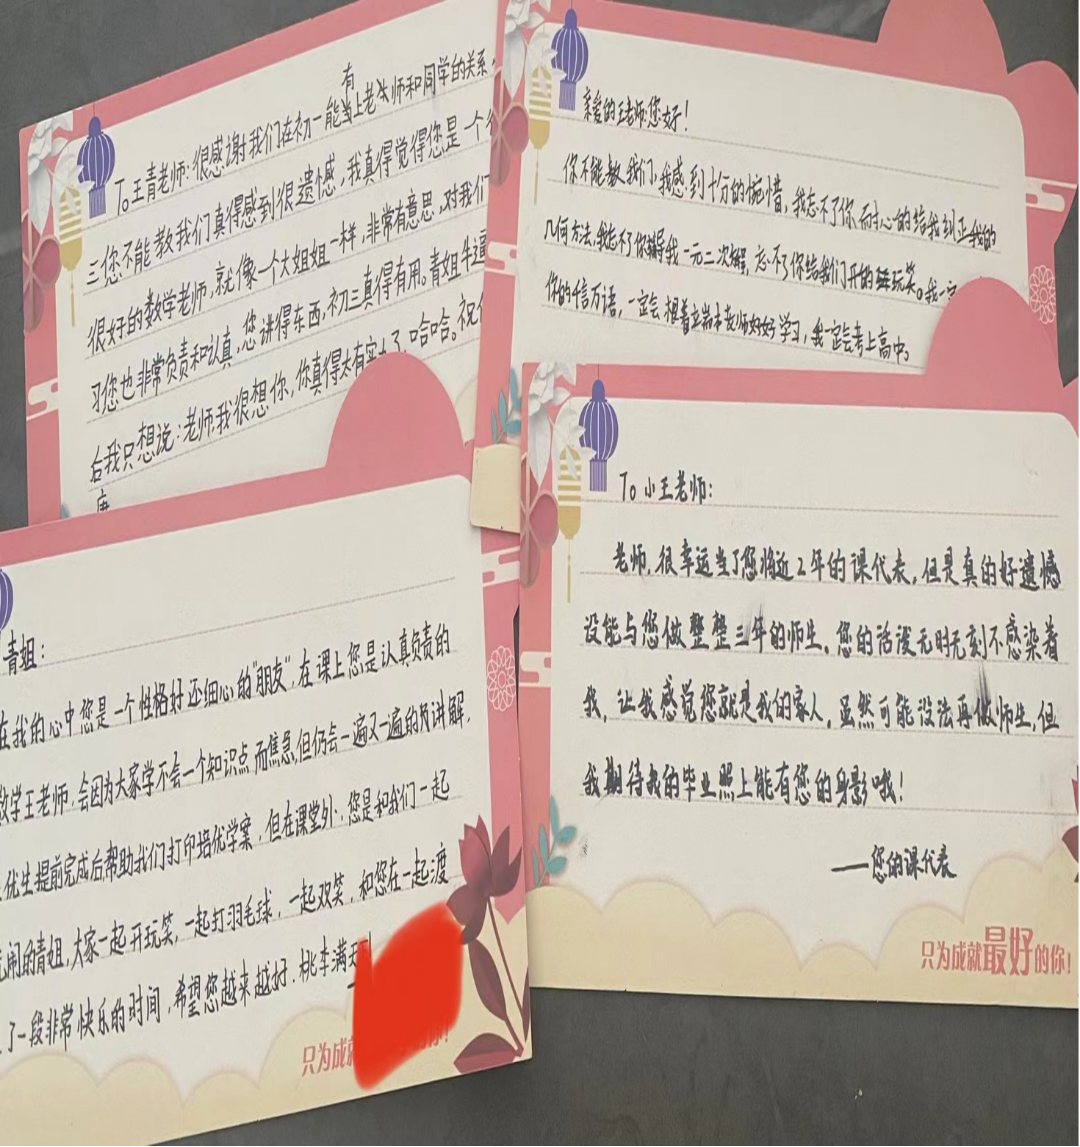 有
To 王青老师:很感谢我们在初一能当上老师和同学的关系,
三您不能教我们真得感到很遗憾,我真得觉得您是一个
很好的数学老师,就像一个大姐姐一样,非常有意思,对我们
习您也非常负责和认真,您讲得东西,初三真得有用。青姐牛逼
后我只想说:老师,我很想你,你真得太有实力了哈哈。祝
亲爱的王老师:您好!
你不能教我们,我感到十分的惋惜,我忘不了你耐心的给我纠正我的
几何方法,我忘不了你辅导我一元二次解,忘不了你给我们开的玩笑。我一
你的千言万语,一定会跟着老师好好学习,我一定会考上高中。
青姐:
在我的心中您是一个性格好还细心的"朋友",在课上您是认真负责的
数学王老师,会因为大家学不会一个知识点而焦急,但仍会一遍又一遍的讲解,
优生提前完成后,帮助我们打印培优学案,但在课堂外,您是和我们一起
闹的青姐,大家一起开玩笑,一起打羽毛球,一起欢笑,和您在一起渡
了一段非常快乐的时间,希望您越来越好,桃李满天
只为成就
To 小王老师:
老师,很幸运当了您将近2年的课代表,但是真的好遗憾
没能与您做整整三年的师生。您的活泼无时无刻不感染着
我,让我感觉您就是我的家人,虽然可能没法再做师生,但
我期待我的毕业照上能有您的身影哦!
——您的课代表
只为成就最好的你!